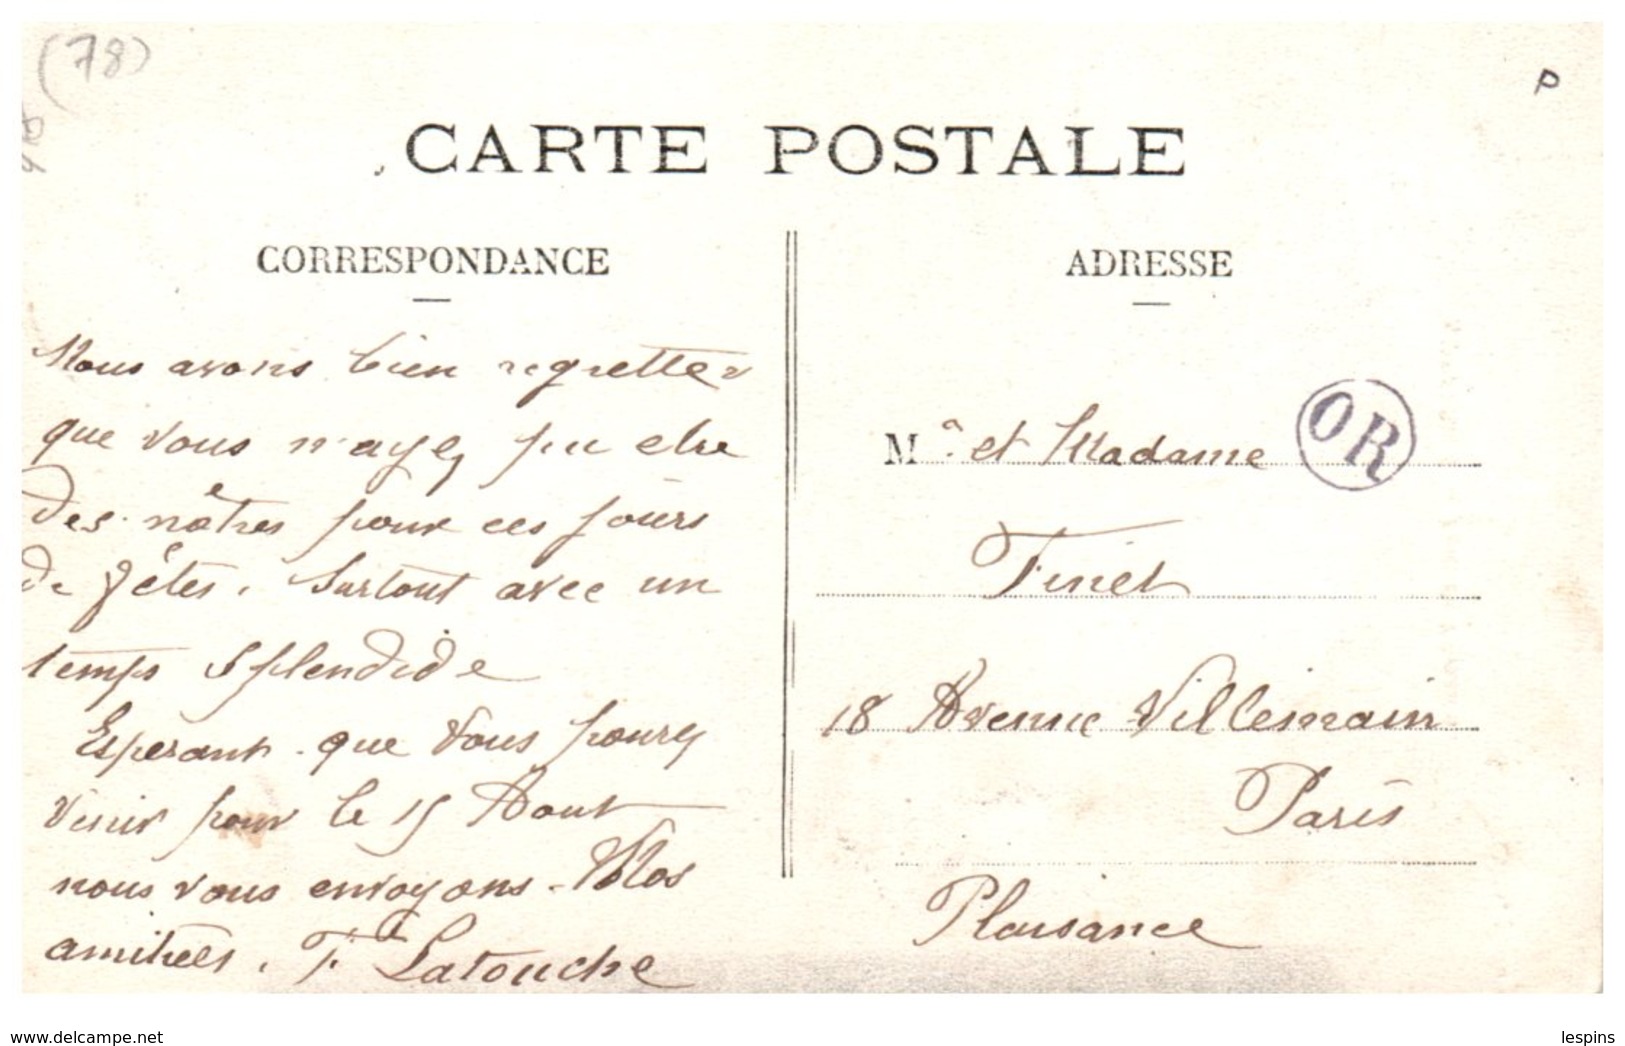 (78)
P
CARTE POSTALE
CORRESPONDANCE
Nous avons bien regretter
que vous n'ayez pu etre
des nôtres pour ces jours
de fêtes, surtout avec un
temps splendide
Esperant que vous pourez
venir pour le 15 Aout
nous vous envoyons Nos
amitiées, F Latouche
ADRESSE
Mr et Madame
OR
Finet
18 Avenue Villemain
Paris
Plaisance
www.delcampe.net
lespins